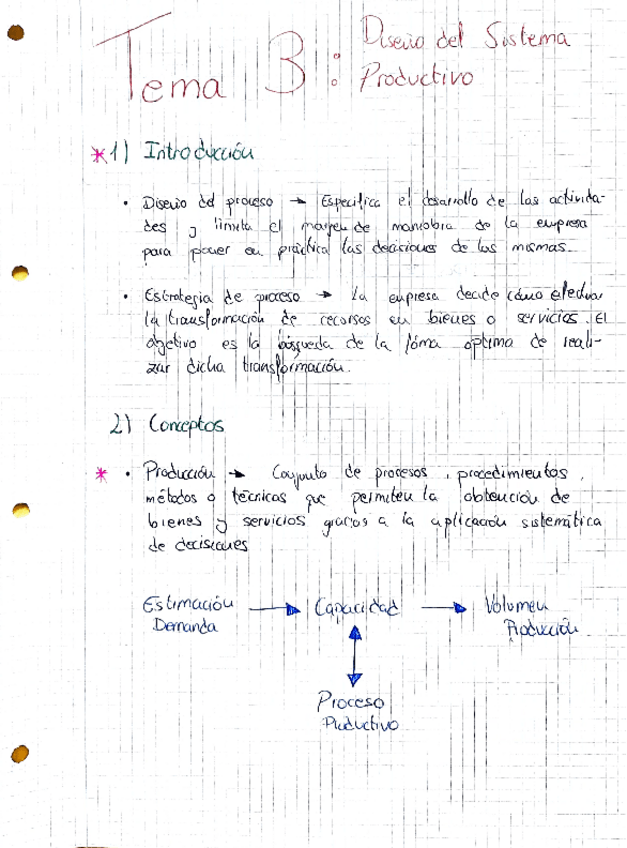 Tema 3: Diseño del Sistema
Productivo
*1) Introducción
• Diseño del proceso → Especifica el desarrollo de las activida-
des y limita el margen de maniobra de la empresa
para poner en práctica las decisiones de las mismas.
• Estrategia de proceso → La empresa decide cómo efectuar
la transformación de recursos en bienes o servicios. El
objetivo es la búsqueda de la fóma optima de reali-
zar dicha transformación.
2) Conceptos
* • Producción → Conjunto de procesos, procedimientos,
métodos o técnicas que permiten la obtención de
bienes y servicios gracias a la aplicación sistemática
de decisiones
Estimación → Capacidad → Volumen
Demanda Producción
Proceso
Productivo